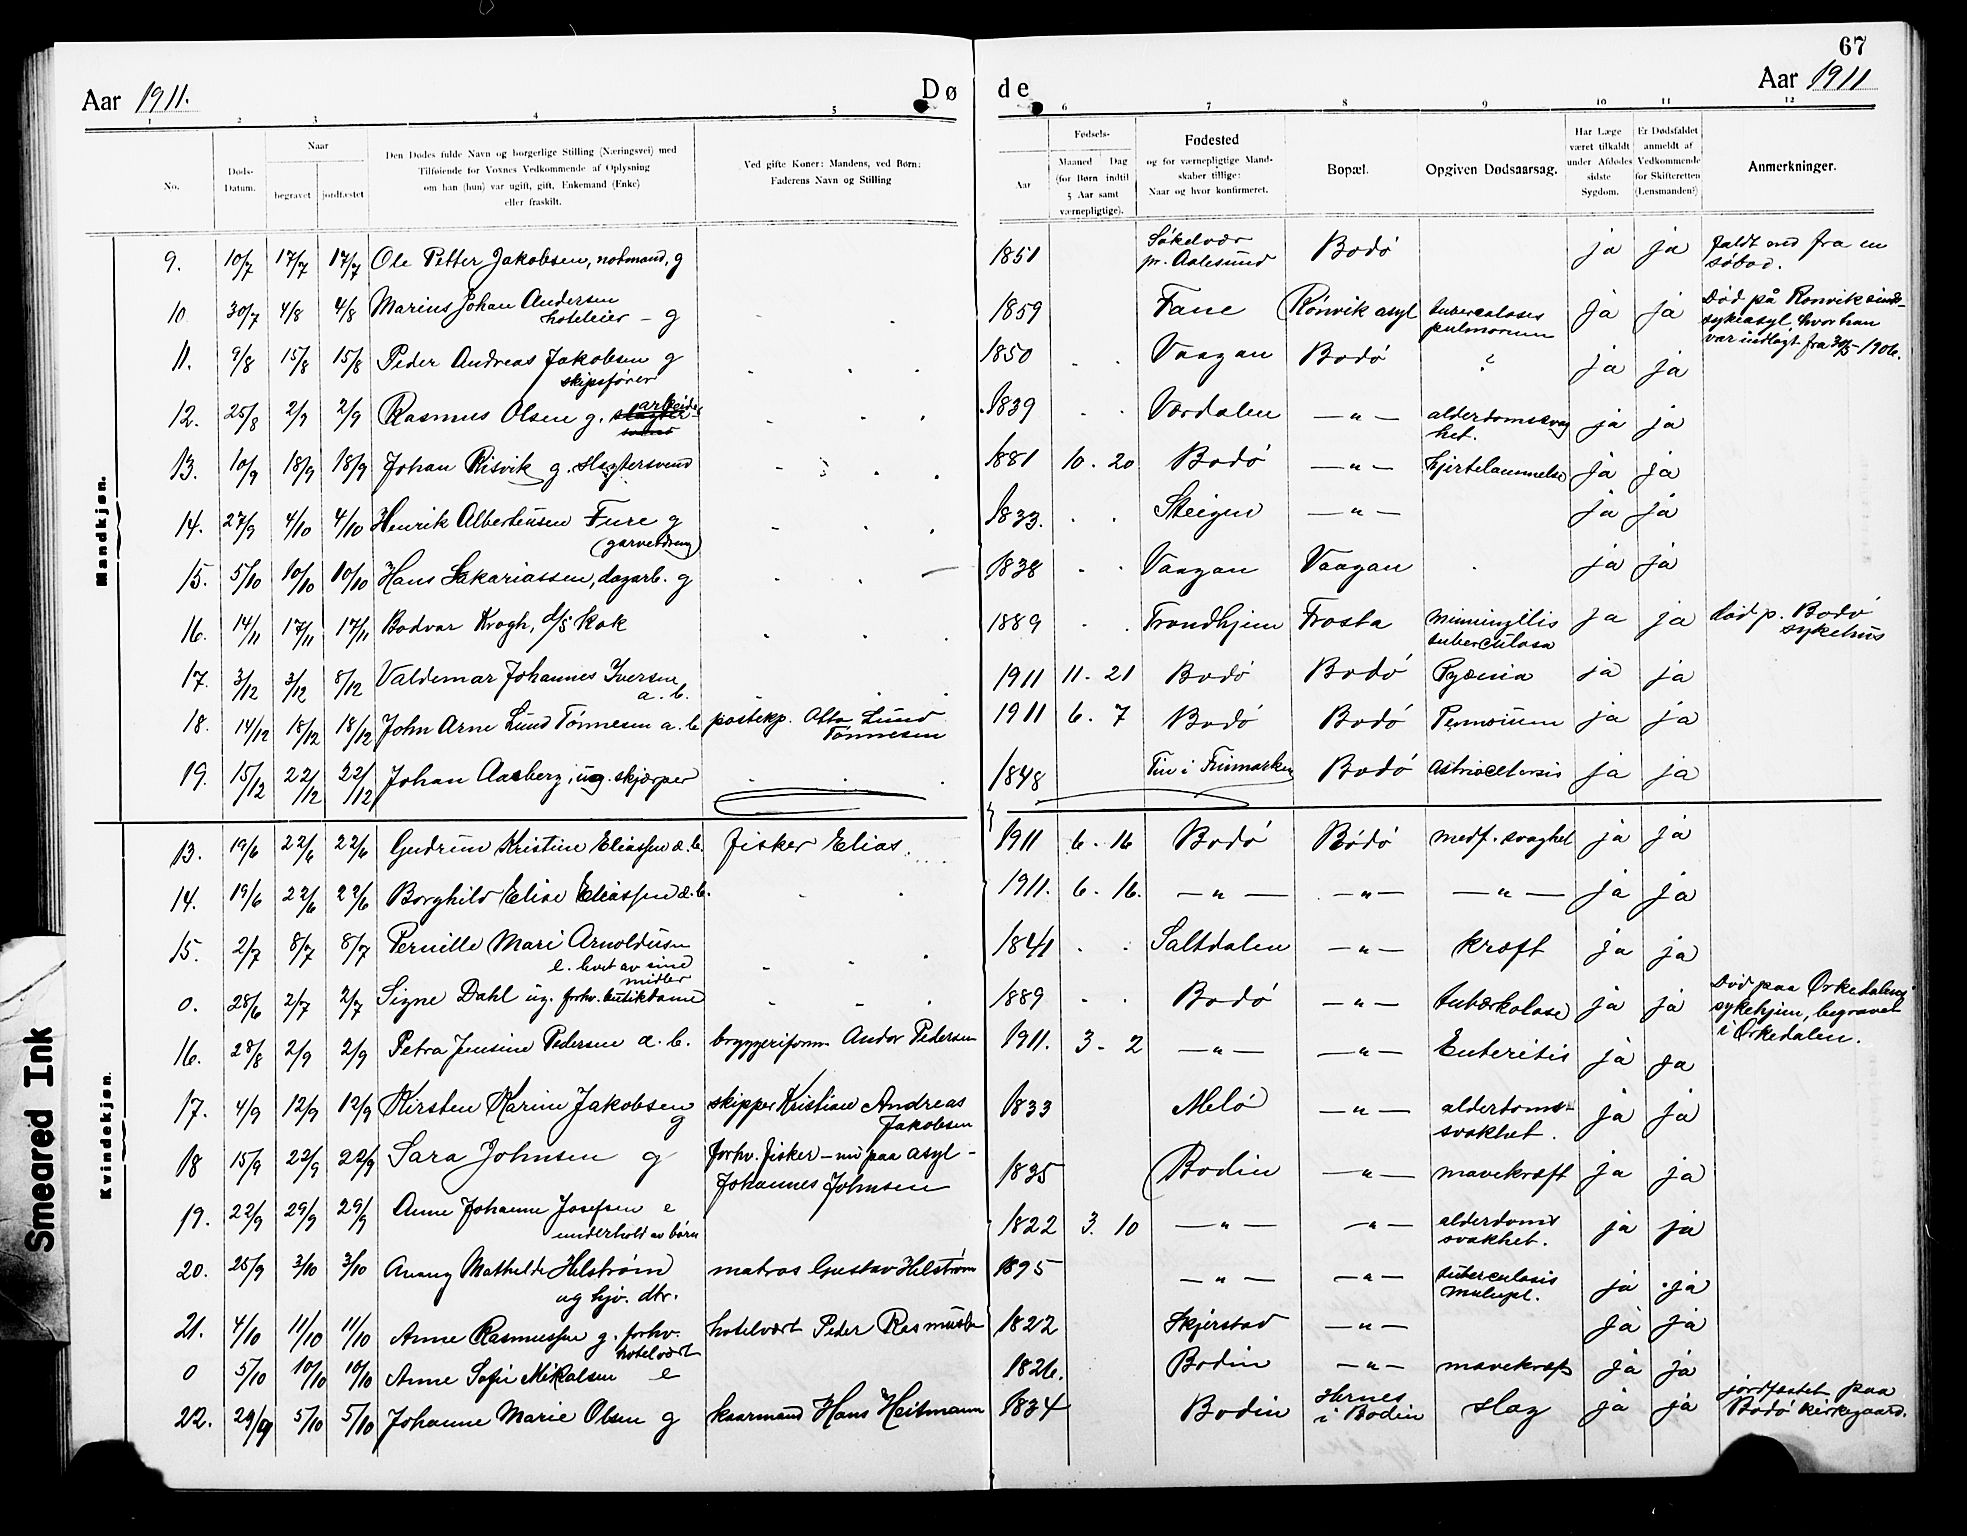 67
Aar 1911.
Dø de
Aar 1911
1 2 3 4 5 6 7 8 9 10 11 12
No.
Døds-Datum.
Naar
begravet
jordfæstet
Den Dødes fulde Navn og borgerlige Stilling (Næringsvei) med
Tilføiende for Voxnes Vedkommende af Oplysning
om han (hun) var ugift, gift, Enkemand (Enke)
eller fraskilt.
Ved gifte Koner: Mandens, ved Børn:
Faderens Navn og Stilling
Fødsels-
Aar
Maaned Dag
(for Børn indtil
5 Aar samt
værnepligtige).
Fødested
og for værnepligtige Mand-
skaber tillige:
Naar og hvor konfirmeret.
Bopæl.
Opgiven Dødsaarsag.
Har Læge
været tilkaldt
under Afdødes
sidste
Sygdom.
Er Dødsfaldet
anmeldt af
Vedkommende
for Skifteretten
(Lensmanden?)
Anmerkninger.
Mandkjøn.
9. 10/7 17/7 17/7 Ole Petter Jakobsen, notmand, g 1851 pr. Aalesund Bodö ja ja faldt ned fra en
10 30/7 4/8 4/8 Marius Johan Andersen
hoteleier - g 1859 Fane Rönvik asyl tuberculosis
pulmorum ja ja Död på Rönvik sinds-
sykeasyl, hvor han
var indlagt fra 30/5-1906.
11. 9/8 15/8 15/8 Peder Andreas Jakobsen g
skipsfører 1850 Vaagan Bodö ? ja ja
12. 25/8 2/9 2/9 Rasmus Olsen g. arbeider 1839 Værdalen — " — alderdomssvag
het. ja ja
13. 10/9 18/9 18/9 Johan Risvik g. slagtersvend 1881 10. 20 Bodö — " — hjertelammelse ja ja
14. 27/9 4/10 4/10 Henrik Albertensen Fure g 1833. Steigen — " — ja ja
15. 5/10 10/10 10/10 Hans Sakariassen, dagarb. g 1838 Vaagan Vaagan ja ja
16. 14/11 17/11 17/11 Bodvar Krogh, d/s kok 1889 Trondhjem Frosta
tuberculosa ja ja död p. Bodö
sykehus
17. 3/12 3/12 8/12 Valdemar Johannes Iversen
a. b. 1911 11. 21 Bodö Bodö Pyæmia ja ja
18. 14/12 18/12 18/12 John Arne Lund Tönnesen a. b postekp. Otto Lund
Tönnesen 1911 6. 7 Bodö Bodö ja ja
19. 15/12 22/12 22/12 Johan Aasberg, ug. skjærper 1848 Bodö ja ja
Kvindekjøn.
13. 19/6 22/6 22/6 Gudrun Kristine Eliassen æ. b. fisker Elias 1911 6. 16 Bodö Bödö medf. svaghet ja ja
14. 19/6 22/6 22/6 Borghild Elise Eliassen æ. b. 1911. 6. 16. — " — — " — — " — ja ja
15. 2/7 8/7 8/7 Pernille Mari Arnoldusen
e. levet av sine
midler 1841 Saltdalen — " — kræft ja ja
0. 28/6 2/7 2/7 Signe Dahl ug. forhv. butikdame 1889 Bodö — " — tuberkolose ja ja Död paa Orkedalens
sykehjem, begravet
i Orkedalen.
16. 28/8 2/9 2/9 Petra Jensine Pedersen æ. b. bryggeriform Andor Pedersen 1911. 3 - 2 — " — — " — Enteritis ja ja
17. 4/9 12/9 12/9 Kirsten Karine Jakobsen
g skipper Kristian Andreas
Jakobsen 1833 Melö — " — alderdoms-
svakhet. ja ja
18 15/9 22/9 22/9 Sara Johnsen g forhv. fisker - nu paa asyl -
Johannes Johnsen 1835 Bodin — " — mavekræft ja ja
19. 22/9 29/9 29/9 Anne Johanne Josefsen e
underhold av börn 1822 3. 10 — " — — " — alderdoms
svakhet. ja ja
20. 25/9 3/10 3/10 Mathilde Helström
ug hjv. dtr. matros Gustav Helström 1895 — " — — " — tuberculosis ja ja
21. 4/10 11/10 11/10 Anne Rasmussen g. forhv.
hotelvært hotelvært Peder Rasmussen 1822 Skjerstad — " — ja ja
0 5/10 10/10 10/10 Anne Sofie Mikalsen e 1826. Bodin — " — mavekræft ja ja
22. 29/9 5/10 5/10 Johanne Marie Olsen g kaarmand Hans Heitmann 1834 Bodin Hernes
i Bodin slag ja ja jordfæstet paa
Bodö kirkegaard.
Smeared Ink